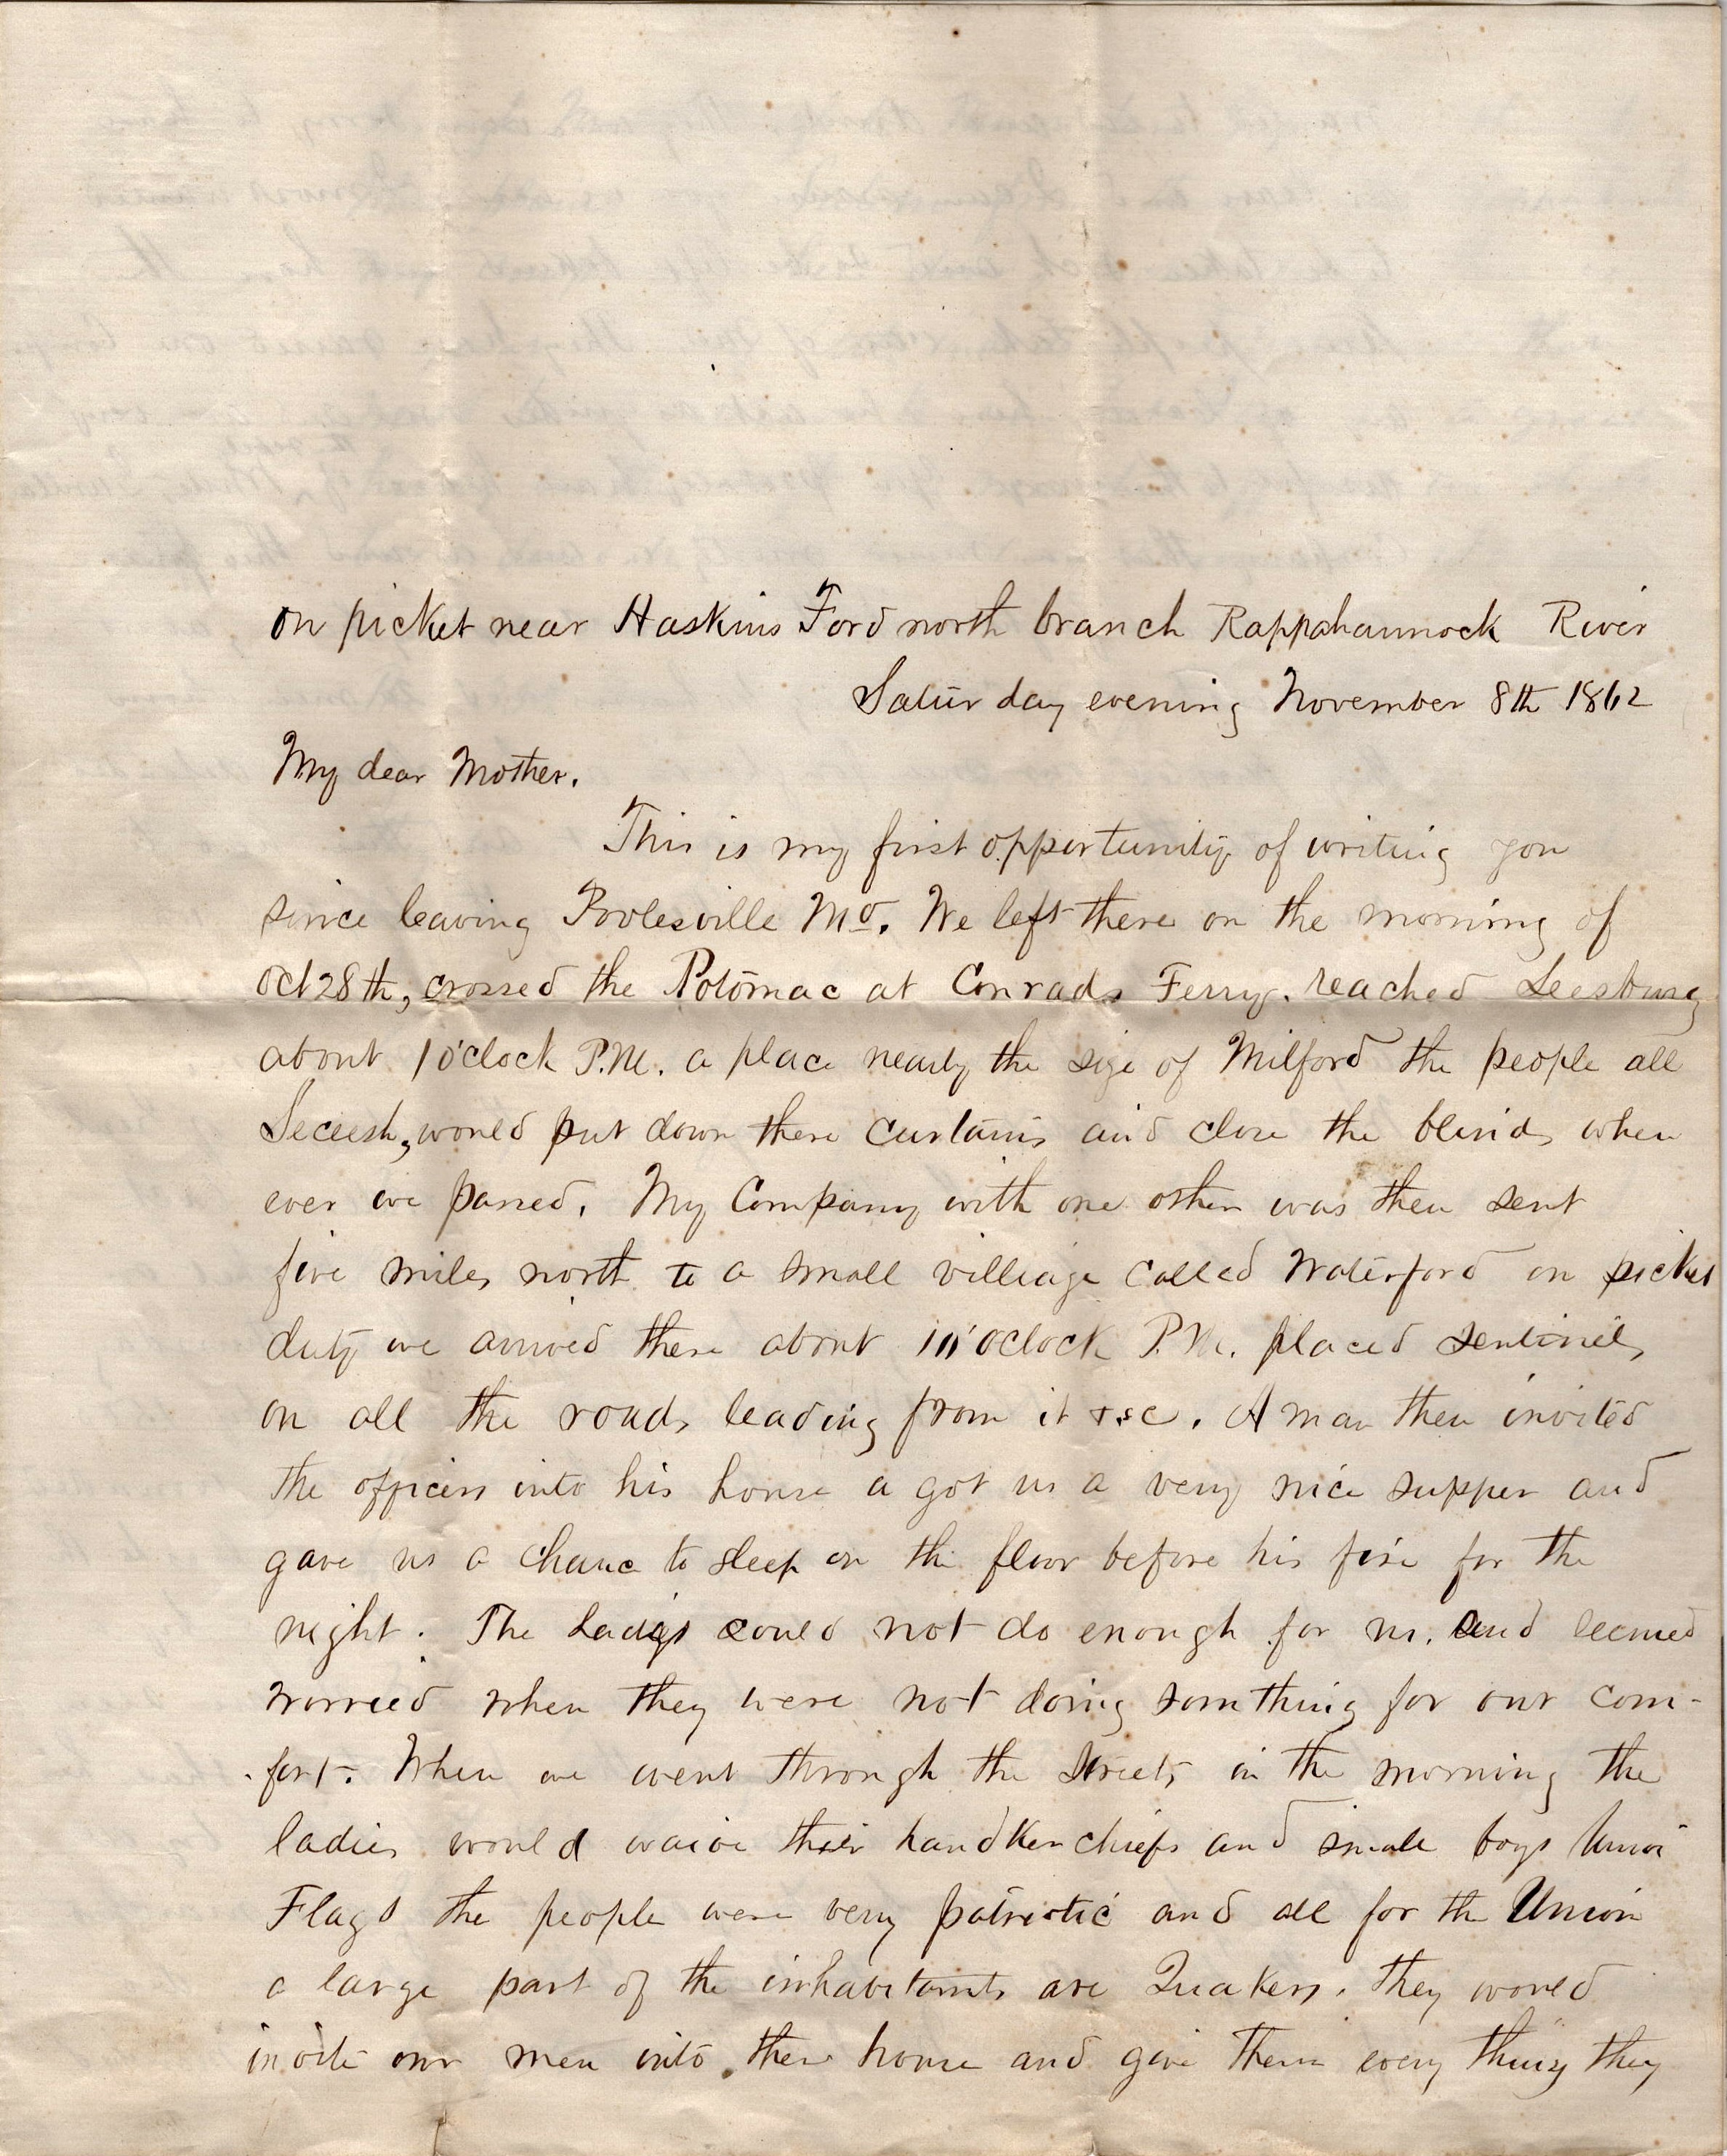 on picket near Haskins Ford north branch Rappahannock River
Saturday evening November 8th 1862
My dear Mother.
This is my first opportunity of writing you
since leaving Poolesville Md. We left there on the morning of
Oct 28th, crossed the Potomac at Conrads Ferry. reached Leesburg
about 1 o'clock P.M. a place nearly the size of Milford the people all
Secesh, would put down there curtains and close the blinds when
ever we passed. My Company with one other was then sent
five miles north to a small villiage called Waterford on picket
duty we arrived there about o'clock P.M. placed sentinels
on all the roads leading from it &c. A man then invited
the officers into his house a got us a very nice supper and
gave us a chance to sleep on the floor before his fire for the
night. The Ladies could not do enough for us. and seemed
worried when they were not doing somthing for our com-
-fort. When we went through the Streets in the morning the
ladies would waive their handkerchiefs and small boys Union
Flags the people were very patriotic and all for the Union
a large part of the inhabitants are Quakers. they would
invite our men into there house and give them every thing they